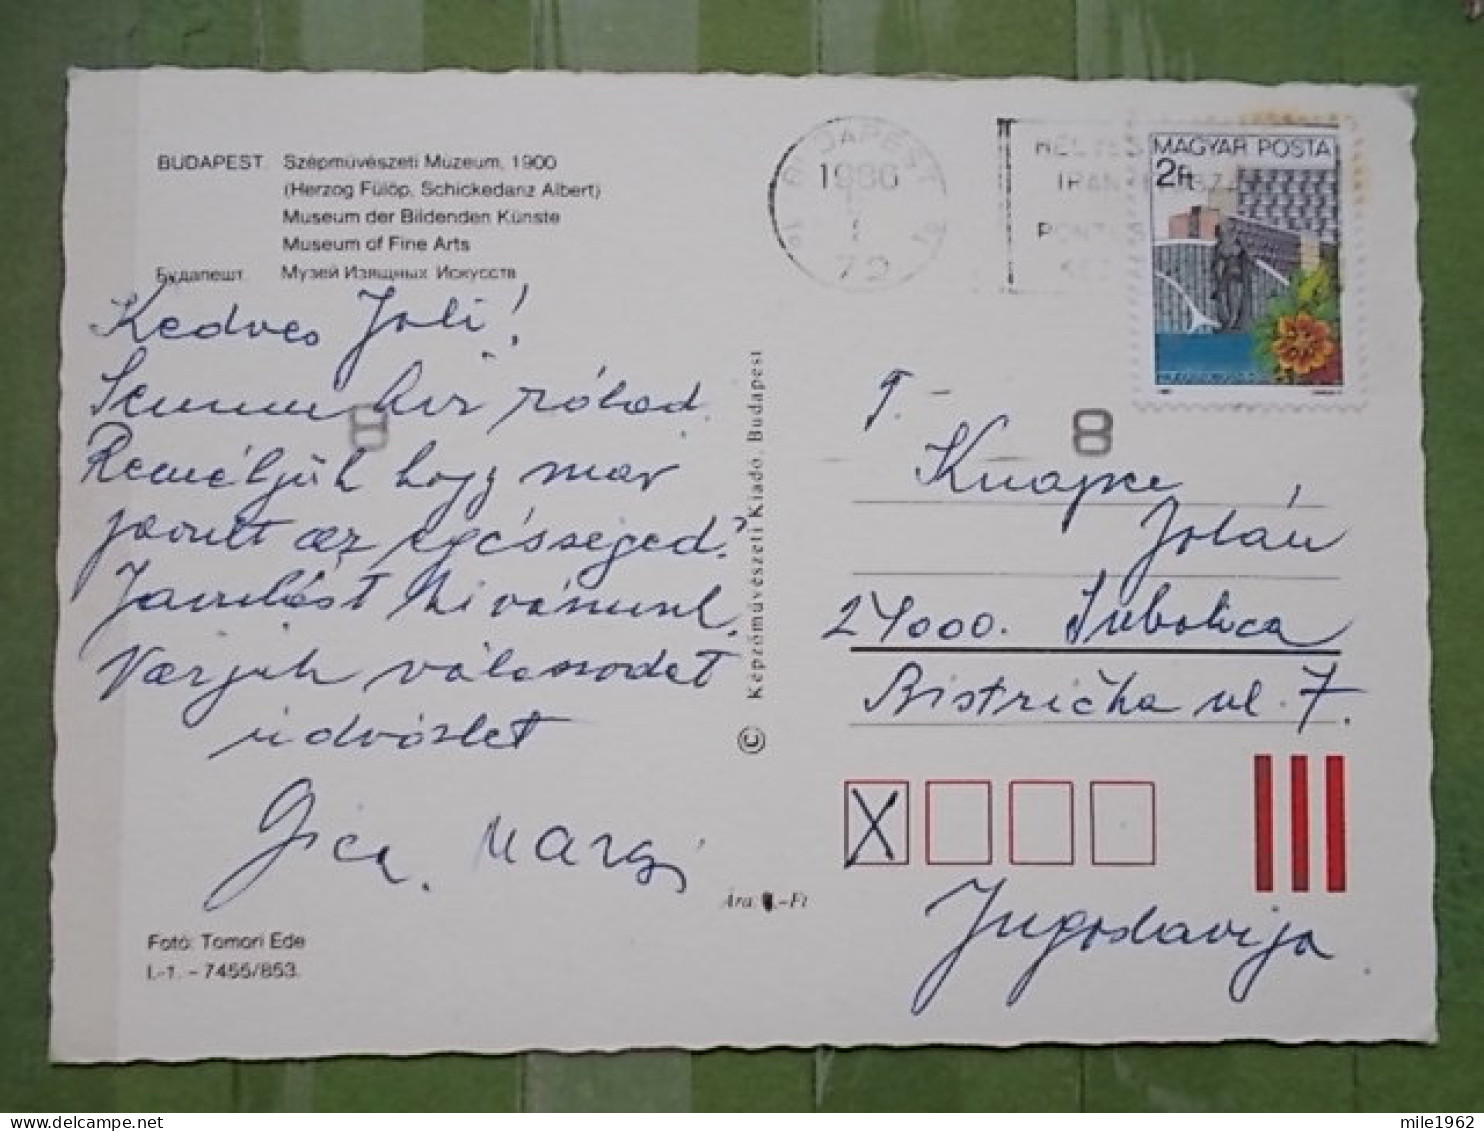 BUDAPEST. Szépművészeti Múzeum, 1900
(Herzog Fülöp, Schickedanz Albert)
Museum der Bildenden Künste
Museum of Fine Arts
Будапешт. Музей Изящных Искусств
Kedves Joli!
Semmi hir rólad.
Reméljük hogy mar
javult az egésséged.
Javulást kivánunk.
Varjuk válaszodat
üdvözlet
Gica. Margi
Fotó: Tomori Ede
I.-1. - 7455/853.
© Képzőművészeti Kiadó, Budapest
Ára: .-Ft
BUDAPEST
1986
72
MAGYAR POSTA
2ft
8
8
T.
Knajpe
Jolán
24000. Subotica
Bistrička ul. 7.
X
Jugoslavija
mile1962